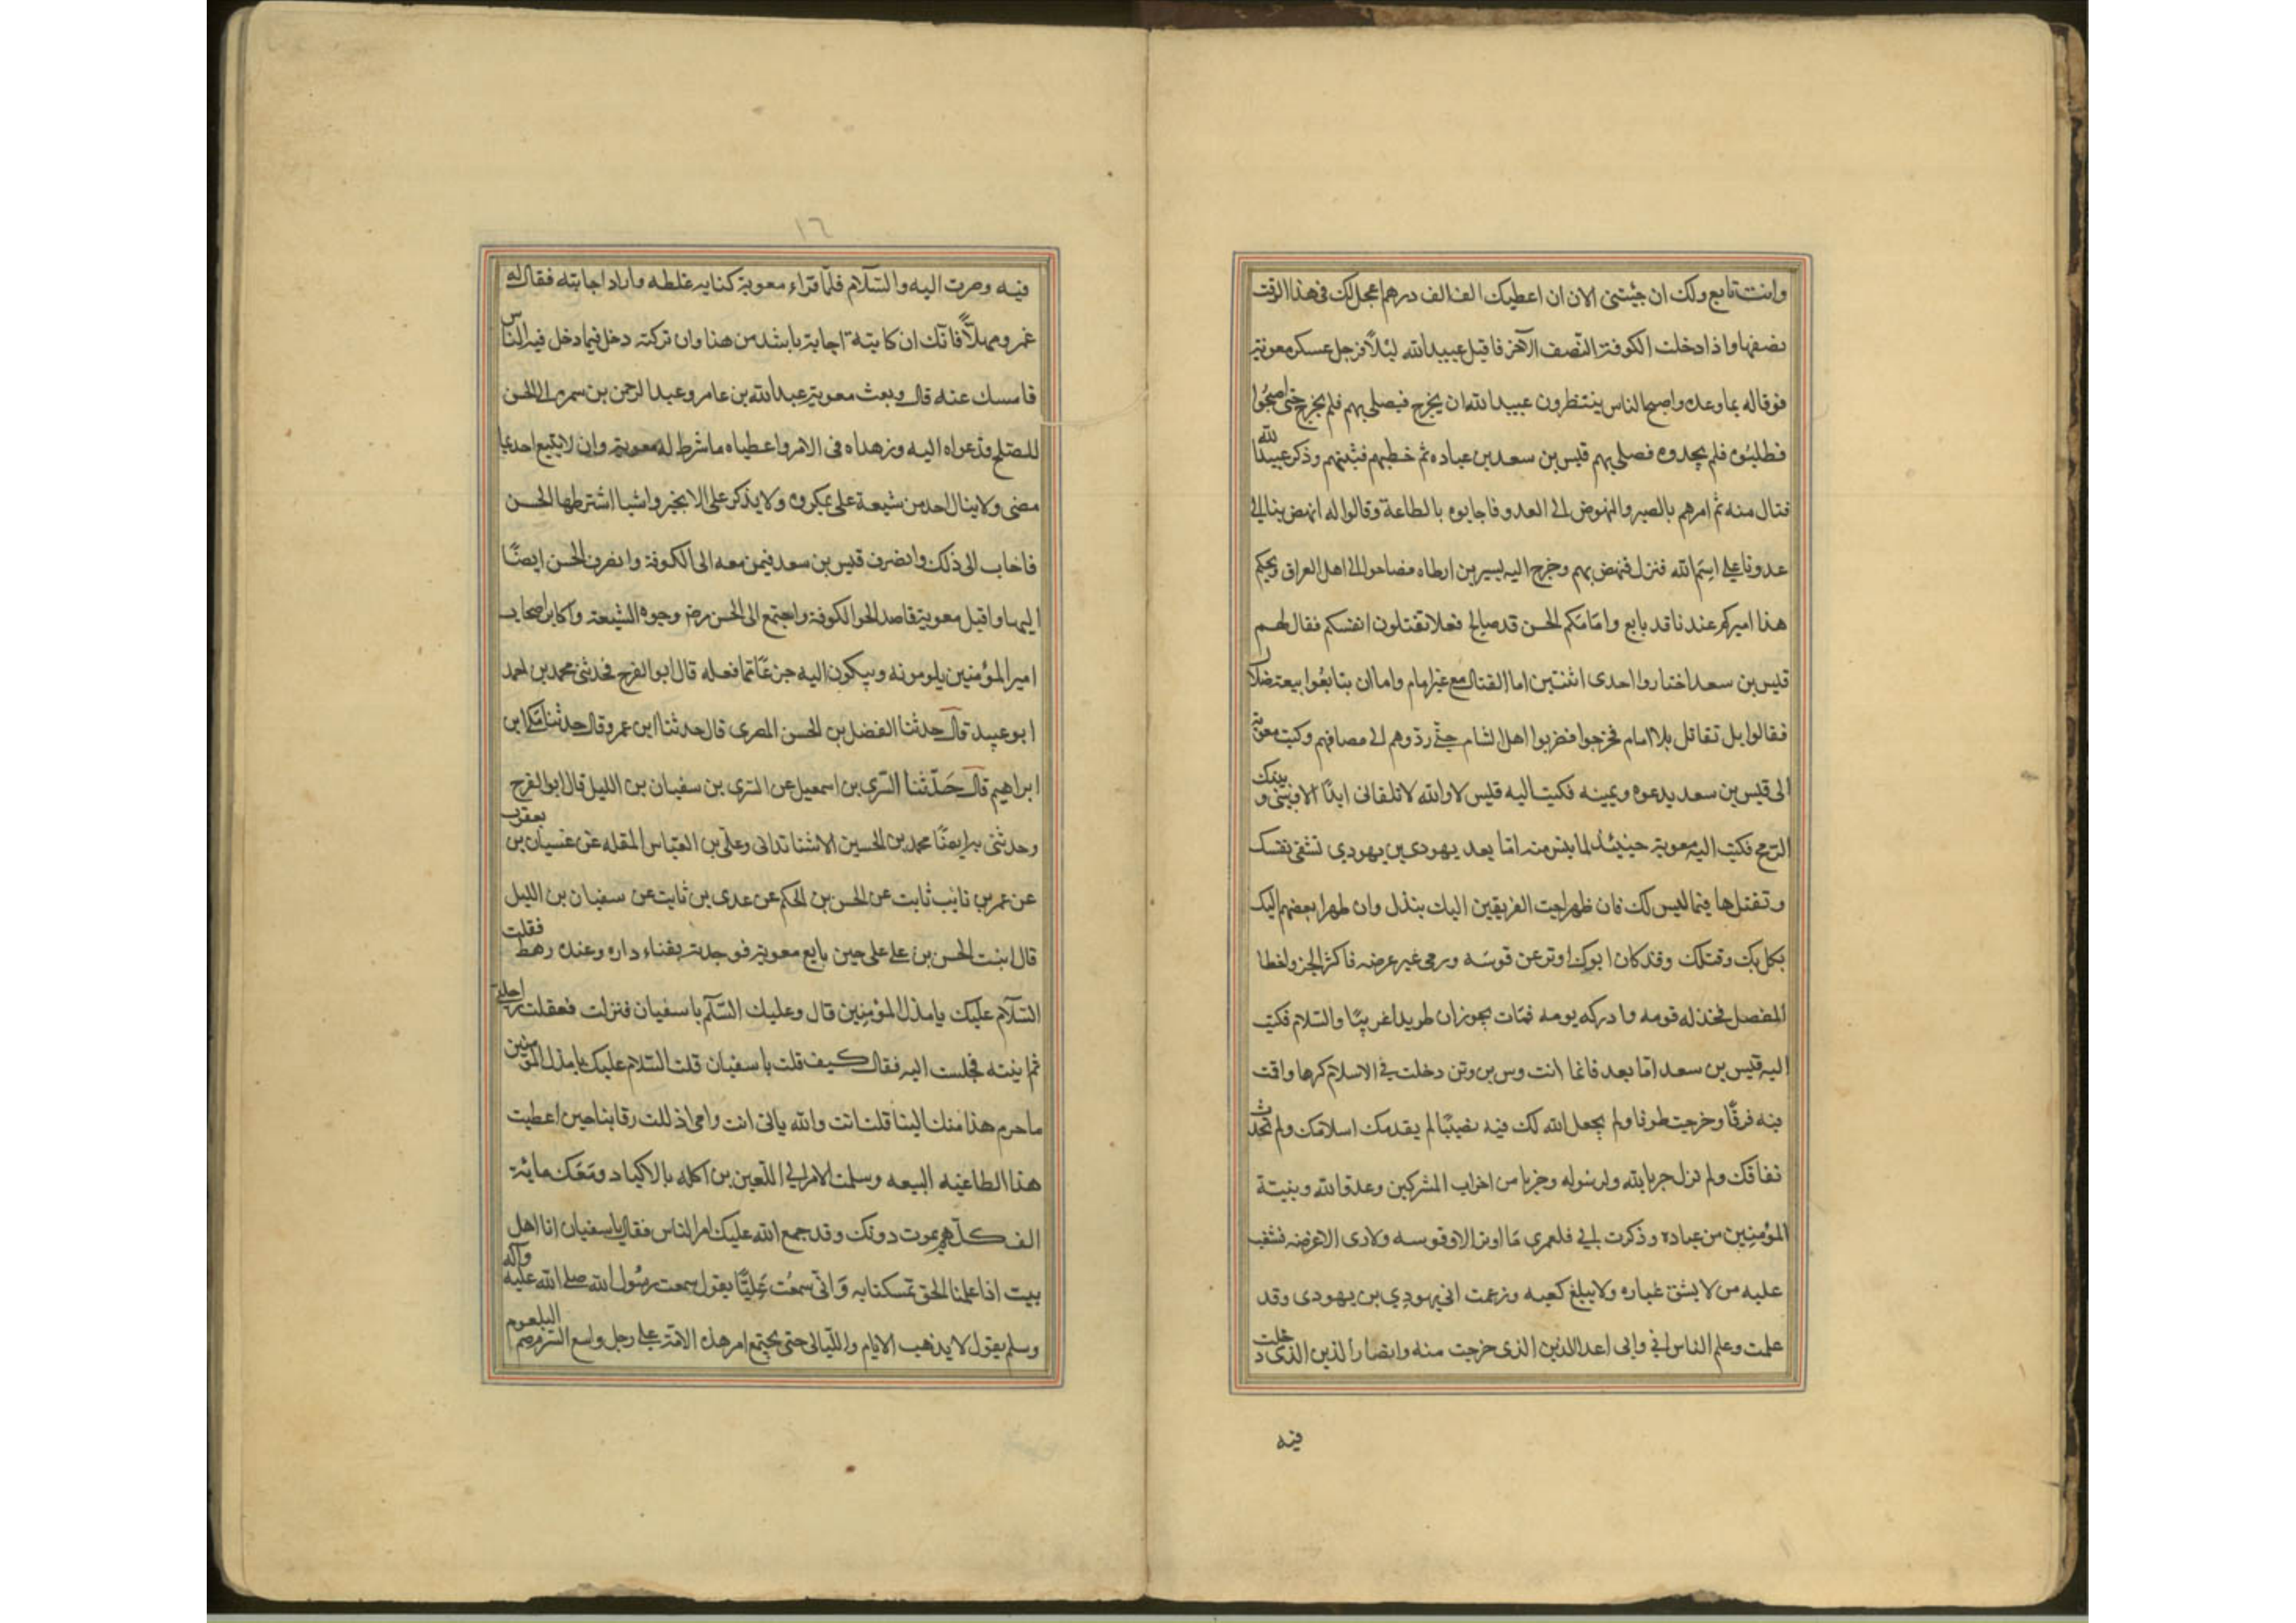 وانت تابع ولك ان جئتنى الان ان اعطيك الف الف درهم اعجل لك فى هذا الوقت
نصفها واذا دخلت الكوفة النصف الآخر فاقبل عبيد الله ليلاً فدخل عسكر معوية
فوفا له بما وعده واصبح الناس ينتظرون عبيد الله ان يخرج فيصلى بهم فلم يخرج حتى اصبحوا
فطلبوه فلم يجدوه فصلى بهم قيس بن سعد بن عباده ثم خطبهم فثبتهم وذكر عبيد الله
فنال منه ثم امرهم بالصبر والنهوض الى العدو فاجابوه بالطاعة وقالوا له انهض بنا الى
عدونا على اسم الله فنزل فنهض بهم وخرج اليه بسير بن ارطاه فصاحوا الى اهل العراق ويحكم
هذا اميركم عندنا قد بايع وامامكم الحسن قد صالح فعلا تقتلون انفسكم فقال لهم
قيس بن سعد اختاروا احدى اثنتين اما القتال مع غير امام واما ان تبايعوا بيعة ضلال
فقالوا بل نقاتل بلا امام فخرجوا فضربوا اهل الشام حتى ردوهم الى مصافهم وكتب معوية
الى قيس بن سعد يدعوه ويمينه فكتب اليه قيس لا والله لا تلقانى ابدًا الا وبينى وبينك
الرمح فكتب اليه معوية حينئذ لما يئس منه امّا بعد يهودى بن يهودى تشفى نفسك
وتقتلها فيما ليس لك فان ظهر احب الفريقين اليك بنذل وان ظهر ابغضهم اليك
نكل بك وقتلك وقد كان ابوك اوتر عن قوسه ورمى غير عرضه فاكثر الحز واخطا
المفصل فخذله قومه وادركه يومه فمات بحوران طريدا غريبًا والسلام فكتب
اليه قيس بن سعد امّا بعد فانما انت وس بن وتن دخلت فى الاسلام كرها واقت
فيه فرقًا وخرجت طوفا ولم يجعل الله لك فيه نصيبًا لم يقدمك اسلامك ولم تحدث
نفاقك ولم تزل حربا لله ولرسوله وحزبا من احزاب المشركين وعدو الله ونبيه
المؤمنين من عباده وذكرت ابى فلعمرى ما اوتر الا قوسه ولا رمى الا عرضه فشغب
عليه من لا يشق غباره ولا يبلغ كعبه وزعمت انى يهودى بن يهودى وقد
علمت وعلم الناس انى وابى اعدا الدين الذى خرجت منه وانصار الدين الذى دخلت
فيه
١٦
فيه وصرت اليه والسّلام فلمّا قراء معوية كتابه غلطه واراد اجابته فقال له
عمرو مهلاً فانك ان كاتبته اجابك باشد من هذا وان تركته دخل فيما دخل فيه الناس
فامسك عنه قال وبعث معوية عبد الله بن عامر وعبد الرحمن بن سمره الى الحسن
للصلح فدعواه اليه وزهداه فى الامر واعطياه ما شرط له معوية وان لا يتبع احد بما
مضى ولا ينال احد من شيعة على بمكروه ولا يذكر على الا بخير واشيا اشترطها الحسن
فاجاب الى ذلك وانصرف قيس بن سعد فيمن معه الى الكوفة وانصرف الحسن ايضًا
اليها واقبل معوية قاصد الحو الكوفة واجتمع الى الحسن رضـ وجوه الشيعة واكابر اصحاب
امير المؤمنين يلومونه ويبكون اليه جزعًا ممّا فعله قال ابو الفرج فحدثنى محمد بن احمد
ابو عبيد قال حدثنا الفضل بن الحسن المصرى قال حدثنا ابن عمرو قال حدثنا مكى بن
ابراهيم قال حَدّثنا السّرى بن اسمعيل عن السرى بن سفيان بن الليل قال ابو الفرج
وحدثنى به ايضًا محمد بن الحسين الاشنا ندانى وعلى بن العبّاس المقله عن عنسيان بن يعقوب
عن عمر بن ثابت عن الحسن بن الحكم عن عدى بن ثابت عن سفيان بن الليل
قال اتيت الحسن بن على على حين بايع معوية فوجدته بفناء داره وعنده رهط فقلت
السّلام عليك يا مذل المؤمنين قال وعليك السّلم يا سفيان فنزلت فعقلت راحلتى
ثم اتيته فجلست اليه فقال كيف قلت يا سفيان قلت السّلام عليك يا مذل المؤمنين
ما حرم هذا منك الينا قلت انت والله بابى انت وامى اذللت رقابنا حين اعطيت
هذا الطاغيه البيعه وسلمت الامر الى اللّعين بن اكله بالاكباد ومعك مائة
الف كلّهم يموت دونك وقد جمع الله عليك امر الناس فقال يا سفيان انا اهل
بيت اذا علمنا الحق تمسكنا به وَانّى سمعْت عَليًّا يقول سمعت رسُول الله صلى الله عليه وآله
وسلم يقول لا يذهب الايام واللّيالى حتى يجتمع امر هذه الامّة على رجل واسع السّر مرضم البلعوم